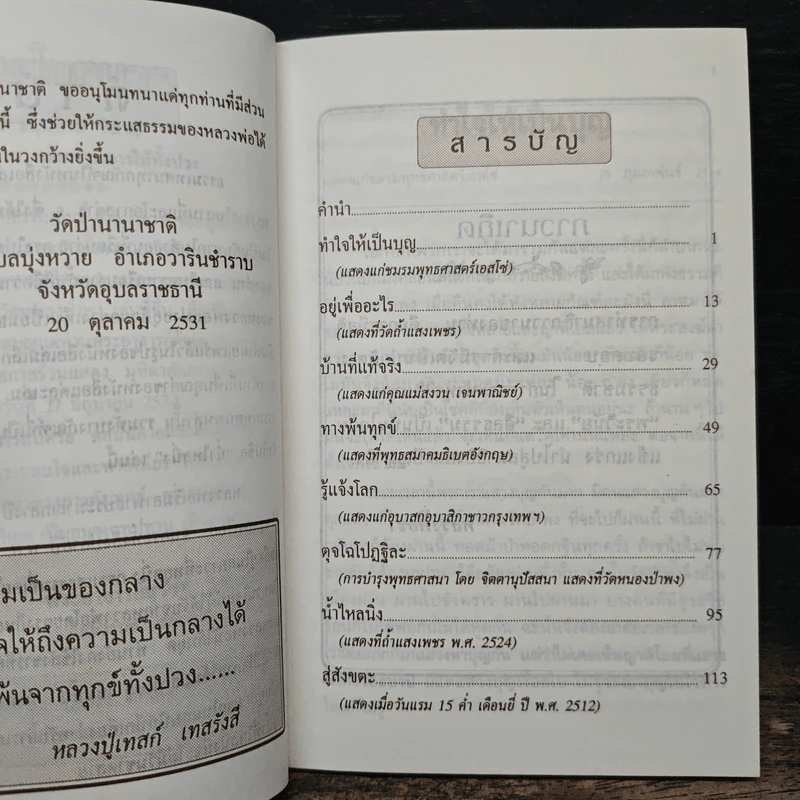 นานาชาติ ขออนุโมนทนาแด่ทุกท่านที่มีส่วน
นี้ ซึ่งช่วยให้กระแสธรรมของหลวงพ่อได้
ในวงกว้างยิ่งขึ้น
วัดป่านานาชาติ
บลบุ่งหวาย อำเภอวารินชำราบ
จังหวัดอุบลราชธานี
20 ตุลาคม 2531
มเป็นของกลาง
ให้ถึงความเป็นกลางได้
พ้นจากทุกข์ทั้งปวง......
หลวงปู่เทสก์ เทสรังสี
สารบัญ
คำนำ
ทำใจให้เป็นบุญ 1
(แสดงแก่ชมรมพุทธศาสตร์เอสโซ่)
อยู่เพื่ออะไร 13
(แสดงที่วัดถ้ำแสงเพชร)
บ้านที่แท้จริง 29
(แสดงแก่คุณแม่สงวน เจนพาณิชย์)
ทางพ้นทุกข์ 49
(แสดงที่พุทธสมาคมธิเบตอังกฤษ)
รู้แจ้งโลก 65
(แสดงแก่อุบาสกอุบาสิกาชาวกรุงเทพฯ)
ตุจโฉโปฏฐิละ 77
(การบำรุงพุทธศาสนา โดย จิตตานุปัสสนา แสดงที่วัดหนองป่าพง)
น้ำไหลนิ่ง 95
(แสดงที่ถ้ำแสงเพชร พ.ศ. 2524)
สู่สังขตะ 113
(แสดงเมื่อวันแรม 15 ค่ำ เดือนยี่ ปี พ.ศ. 2512)